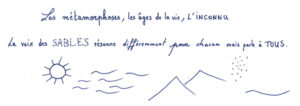 Les métamorphoses, les âges de la vie, L'INCONNU
La voix des SABLES résonne différemment pour chacun mais parle à TOUS.